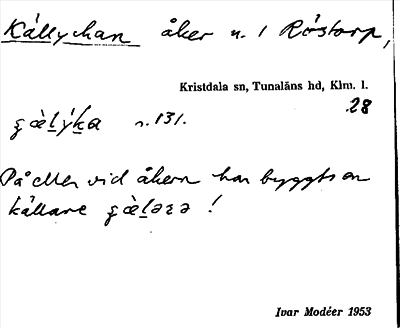 Källychan åker n. 1 Röstorp,
Kristdala sn, Tunaläns hd, Klm. l.
28
n. 131.
På eller vid åkern har byggts en
källare !
Ivar Modéer 1953